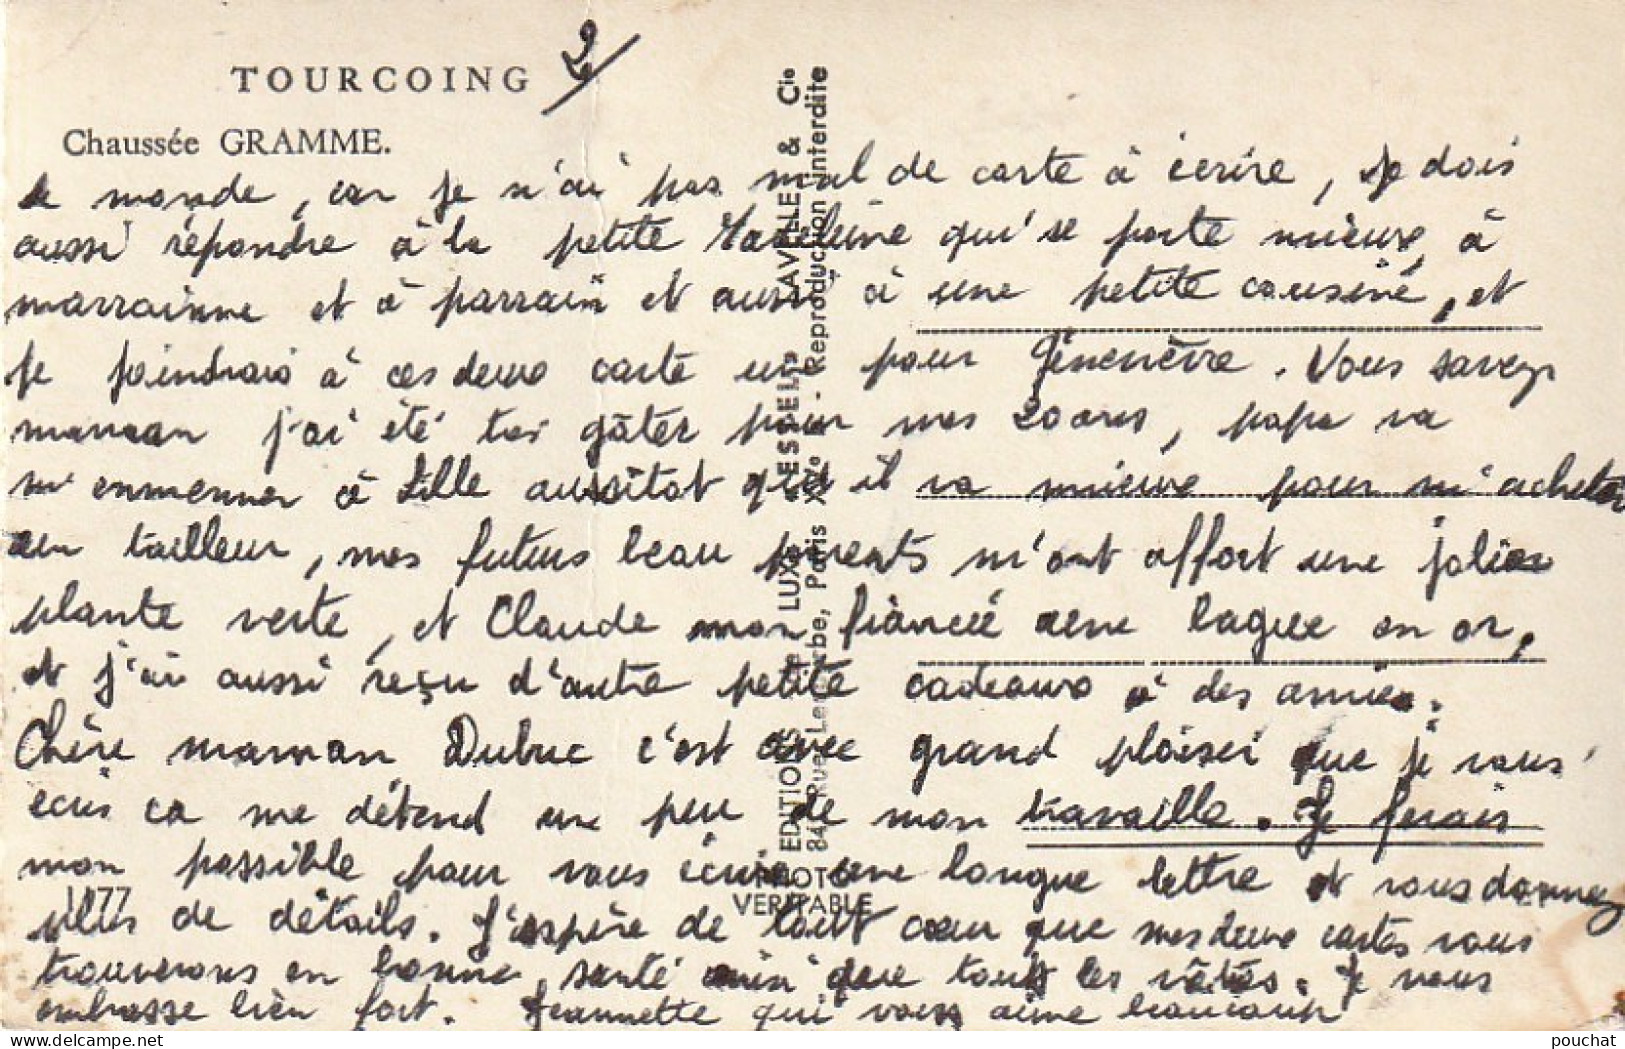 TOURCOING
2
Chaussée GRAMME.
le monde, car je n'ai pas mal de carte à écrire, je dois
aussi répondre à la petite Madeleine qui se porte mieux, à
marrainne et à parrain et aussi à une petite cousine, et
je joindrais à ces deux carte un pour Géneviève. Vous savez
maman j'ai été très gâter pour mes 20 ans, papa va
m'enmenner à Lille aussitot que il va mieux pour m'acheter
un tailleur, mes futurs beau parents m'ont affort une jolie
plante verte, et Claude mon fiancée une bague en or,
et j'ai aussi reçu d'autre petite cadeaux à des amies.
Chère maman Dubuc c'est avec grand plaisir que je vous
écris ca me détend un peu de mon travaille. Je ferais
mon possible pour vous écrire une longue lettre et vous donnez
plus de détails. J'espère de tout cœur que mes deux cartes vous
trouverons en bonne santé ainsi que tous les vôtres. Je vous
embrasse bien fort. Jeannette qui vous aime beaucoup
1177
EDITIONS
84, Rue Lecourbe, Paris XVe Reproduction interdite
PHOTO
VERITABLE
pouchat